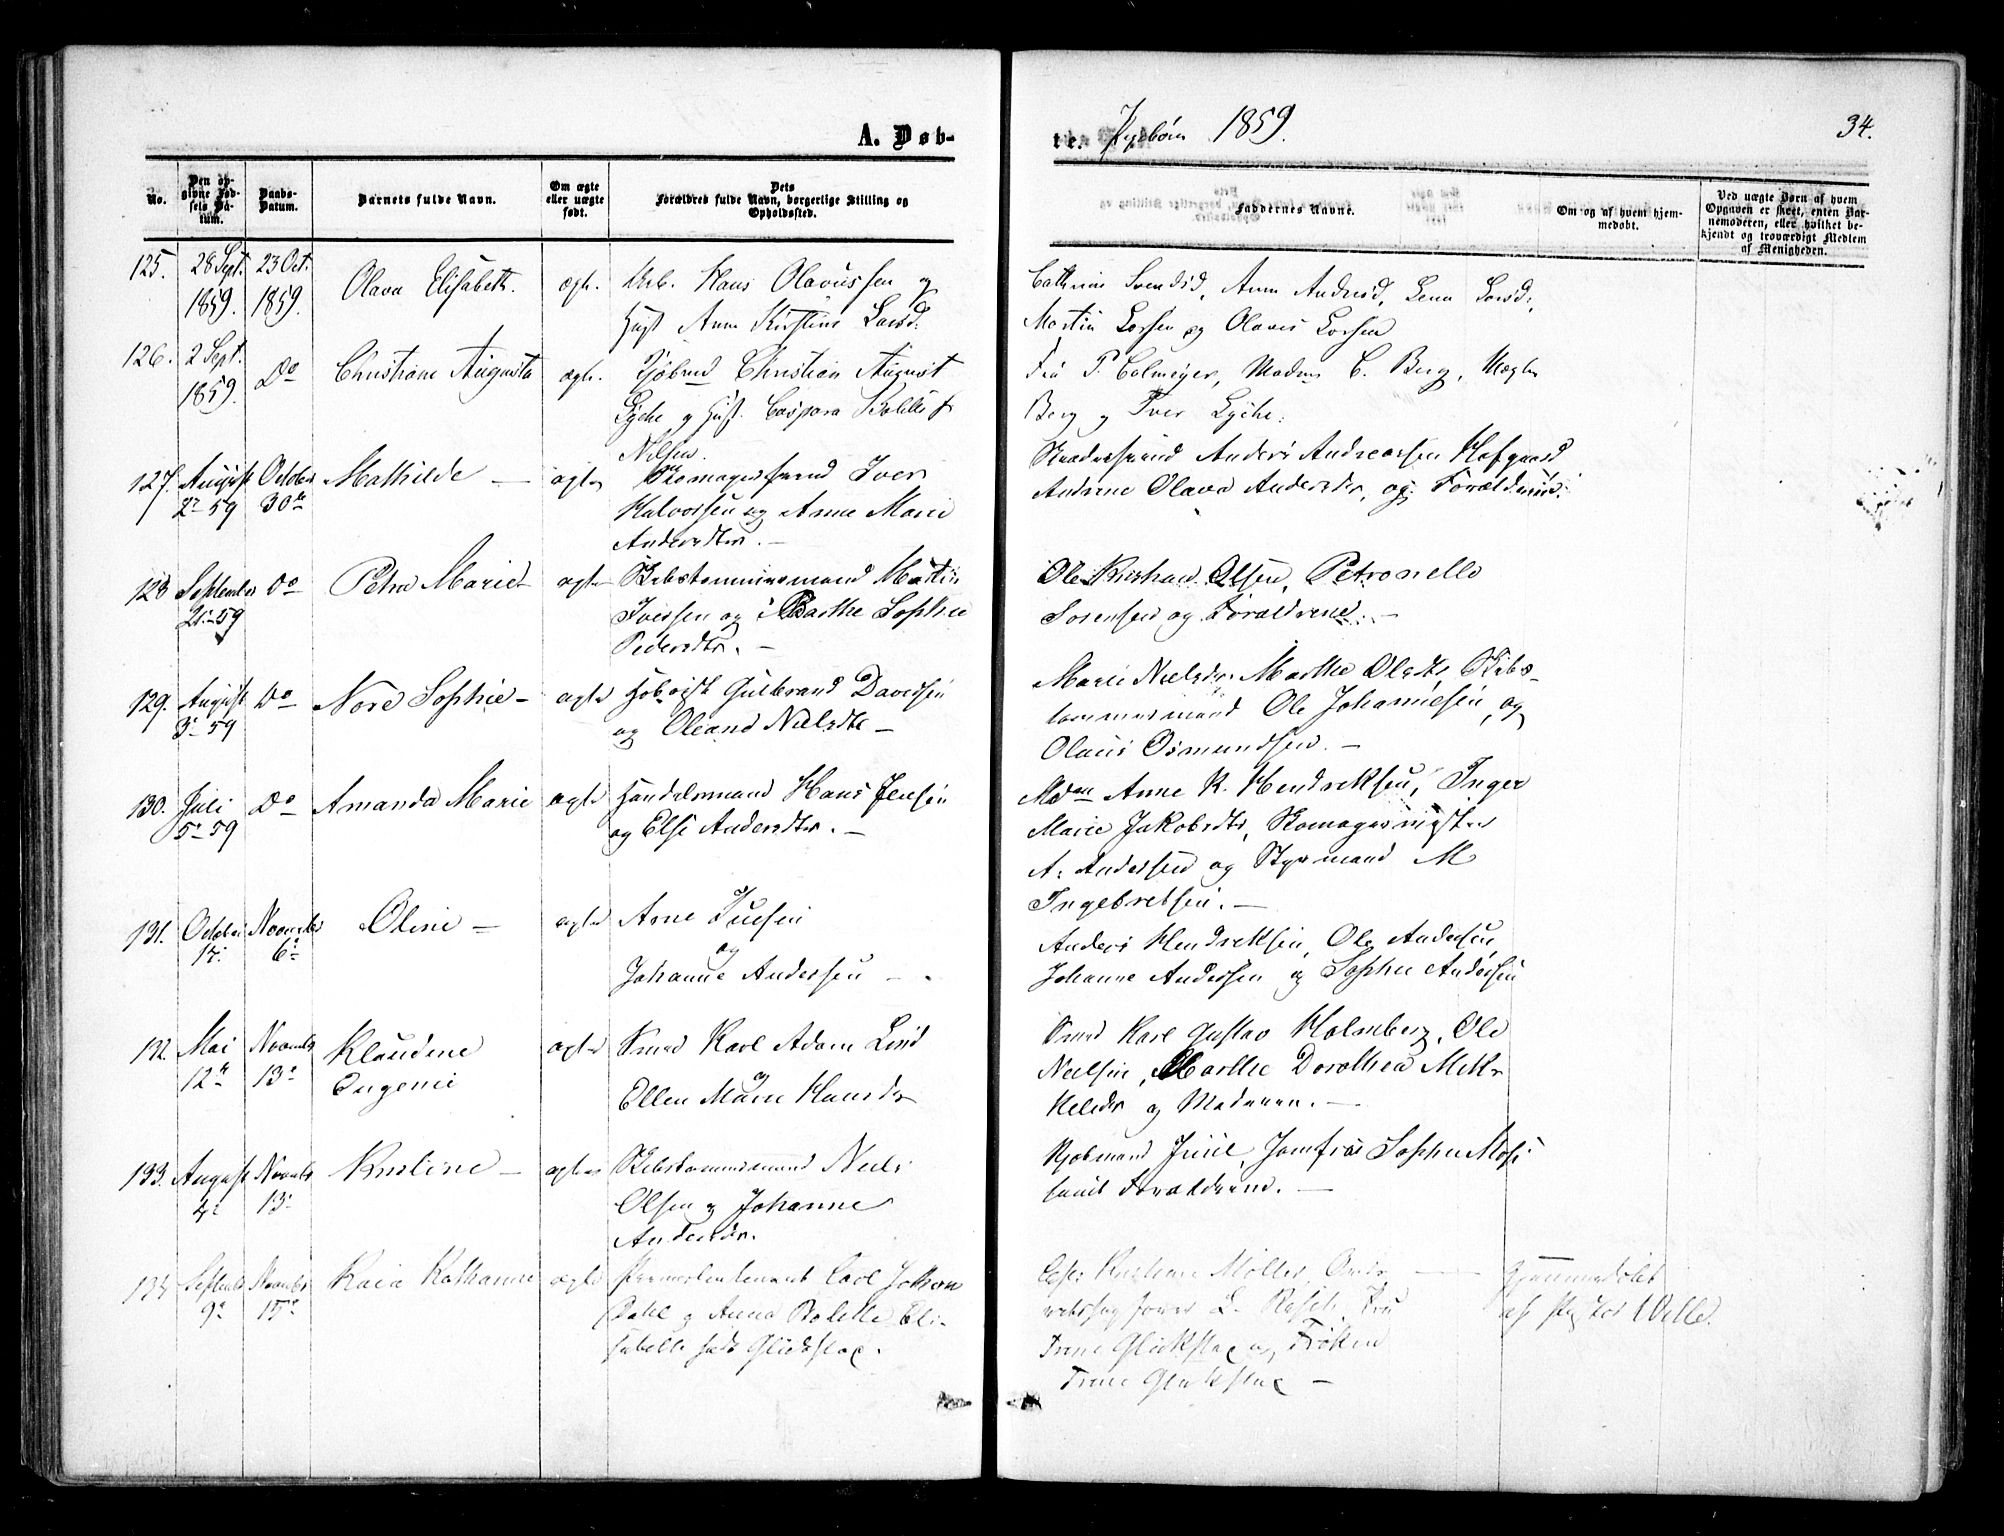 A. Døb-
te.
1859.
34.
No.
Den op-
givne Fød-
sels Da-
tum.
Daabs-
Datum.
Barnets fulde Navn.
Om ægte
eller uægte
født.
Dets
Forældres fulde Navn, borgerlige Stilling og
Opholdssted.
Faddernes Navne.
Om og af hvem hjem-
medøbt.
Ved uægte Børn af hvem
Opgaven er skeet, enten Bar-
nemoderen, eller hvilket be-
kjendt og troværdigt Medlem
af Menigheden.
125. 28 Sept. 23 Oct. Olava Elisabeth. ægte. Arb. Hans Olavussen og
1859. 1859. Hust Anne Kirstine Larsd.
Anne Andersd, Lena Larsd,
Martin Larsen og Olaves Larsen
126. 2 Sept. Do Christiane Augusta ægte. Kjøbmd Christian August
1859. Lyche og Hust. Caspara
Nilsen.
Fru P. Colmeyer, Madm C. Berg, Mægler
Berg og Iver Lyche.
127. August October Mathilde — ægte Skomagersvend Iver
2. 59 30te Halvorsen og Anne Marie
Andersdter. —
Anders Andreassen Hofgaard
Andrine Olava Andersdter, og Forældrene.
128 September Do Petra Marie ægte Skibstømmermand Martin
21. 59 Iversen og Marthe Sophie
Pedersdtr. —
Ole Kristian Olsen, Petronelle
Sørensen og Forældrene. —
129. August Do Nore Sophie — ægte Gulbrand Davidsen
3. 59 og Oleand Nielsdtr —
Marie Nielsdr. Marthe Olsdtr, Skibs-
tømmermand Ole Johannesen, og
Olaus Osmundsen. —
130. Juli Do Amanda Marie ægte Handelsmand Hans Jensen
5. 59 og Else Andersdter. —
Mdm Anne K. Hendriksen, Inger
Marie Jakobsdtr, Skomagermester
A. Andersen og Styrmand M
Ingebretsen. —
131. October November Oline — ægte Arne
17. 6. og
Johanne Andersen — .
Anders Hendriksen, Ole Andersen
Johanne Andersen og Sophie Andersen
132. Mai November Klaudine ægte Smed Karl Adam Lind
12te 13. Eugenie og
Ellen Marie Hansdr
Smed Karl Gustav Holmberg, Ole
Nielsen, Marthe Dorothea Mik-
kelsdr og Moderen. —
133. August November Kristine — ægte Skibstømmermand Niels
4. 13. Olsen og Johanne
Andersdr.
Kjøbmand Juul, Jomfru Sophie
samt Forældrene. —
134 September November Kaia Kathanne ægte Premierlieutenant Carl Johan
9. 15. Dahl og Anna Bolette Eli-
sabethe født Glückstad.
Kristiane Møller, Over-
retssagfører L. Resch, Fru
Trine Glückstad og Frøken
Trine Glückstad —
Hjemmedøbt
af Pastor Wille.